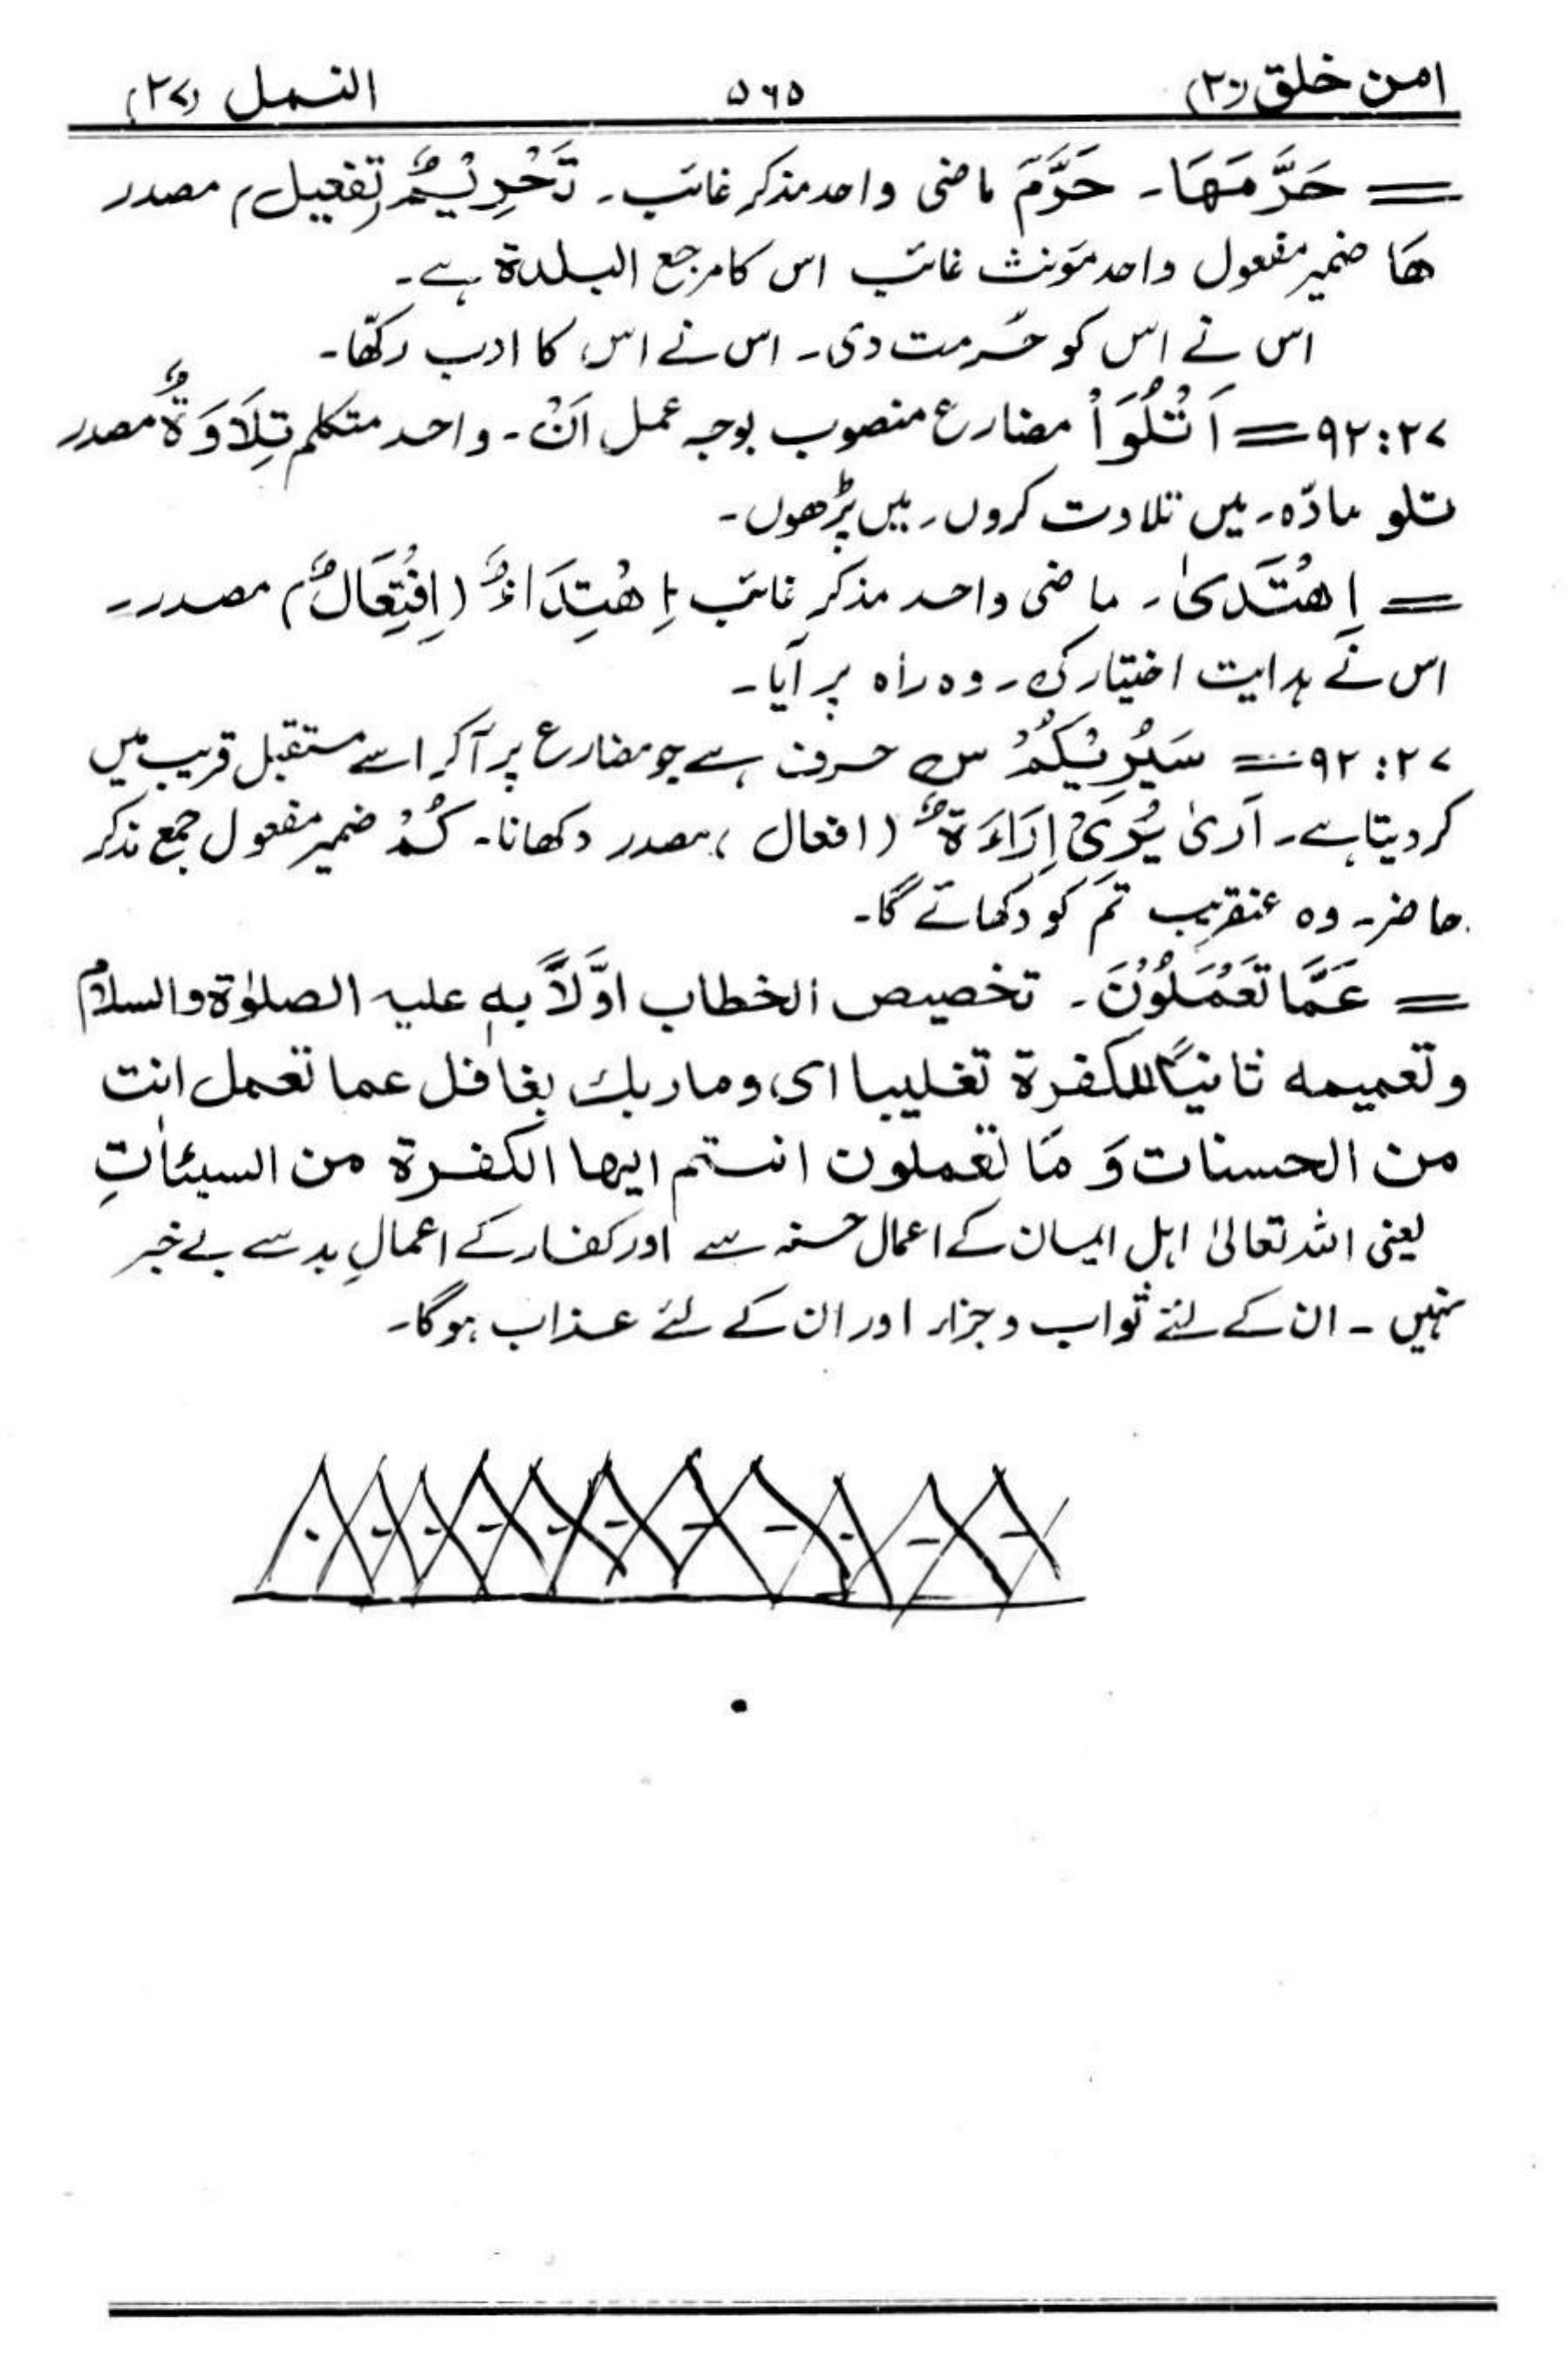 امن خلق (۲۰) ۵۶۵ النمل (۲۷)
= حَرَّمَهَا۔ حَرَّمَ ماضی واحد مذکر غائب۔ تَحْرِيْمٌ (تفعیل) مصدر
ھَا ضمیر مفعول واحد مؤنث غائب اس کا مرجع البلدة ہے۔
اس نے اس کو حُرمت دی۔ اس نے اس کا ادب رکھّا۔
۲۷: ۹۲ = اَتْلُوَاْ مضارع منصوب بوجہ عمل اَنْ۔ واحد متکلم تِلَاوَةٌ مصدر
تلو مادّہ۔ میں تلاوت کروں۔ میں پڑھوں۔
= اِهْتَدىٰ۔ ماضی واحد مذکر غائب اِهْتِدَاءٌ (اِفْتِعَالٌ) مصدر۔
اس نے ہدایت اختیار کی۔ وہ راہ پر آیا۔
۲۷: ۹۲ = سَيُرِيْكُمْ س حرف ہے جو مضارع پر آکر اسے مستقبل قریب میں
کردیتا ہے۔ اَرىٰ يُرِىْ اِرَاءَةٌ (افعال) مصدر دکھانا۔ كُمْ ضمیر مفعول جمع مذکر
حاضر۔ وہ عنقریب تم کو دکھائے گا۔
= عَمَّا تَعْمَلُوْنَ۔ تخصيص الخطاب اوّلًا به عليه الصلوٰة والسلام
وتعميمه ثانيًا للكفرة تغليبا اى وما ربك بغافل عما تعمل انت
من الحسنات وَ مَا تعملون انتم ايها الكفرة من السيئاتِ
یعنی اللہ تعالیٰ اہل ایمان کے اعمال حسنہ سے اور کفار کے اعمالِ بد سے بے خبر
نہیں۔ ان کے لئے ثواب و جزاء اور ان کے لئے عذاب ہوگا۔